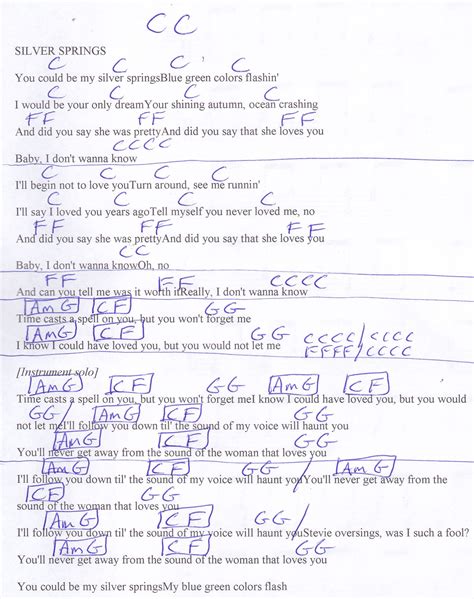 C C
SILVER SPRINGS
C C C C
You could be my silver springsBlue green colors flashin'
C C C C
I would be your only dreamYour shining autumn, ocean crashing
FF FF FF
And did you say she was prettyAnd did you say that she loves you
CCCC
Baby, I don't wanna know
C C C C
I'll begin not to love youTurn around, see me runnin'
C C C C
I'll say I loved you years agoTell myself you never loved me, no
FF FF FF
And did you say she was prettyAnd did you say that she loves you
CC
Baby, I don't wanna knowOh, no
FF FF CCCC
And can you tell me was it worth itReally, I don't wanna know
Am G C F GG
Time casts a spell on you, but you won't forget me
Am G C F GG CCCC/CCCC
I know I could have loved you, but you would not let me FFFF/CCCC
[Instrument solo]
Am G C F GG Am G C F
Time casts a spell on you, but you won't forget meI know I could have loved you, but you would
GG/ Am G C F GG
not let meI'll follow you down til' the sound of my voice will haunt you
Am G C F GG
You'll never get away from the sound of the woman that loves you
Am G C F GG/ Am G
I'll follow you down til' the sound of my voice will haunt youYou'll never get away from the
C F GG
sound of the woman that loves you
Am G C F GG/
I'll follow you down til' the sound of my voice will haunt youStevie oversings, was I such a fool?
Am G C F GG
You'll never get away from the sound of the woman that loves you
You could be my silver springsMy blue green colors flash